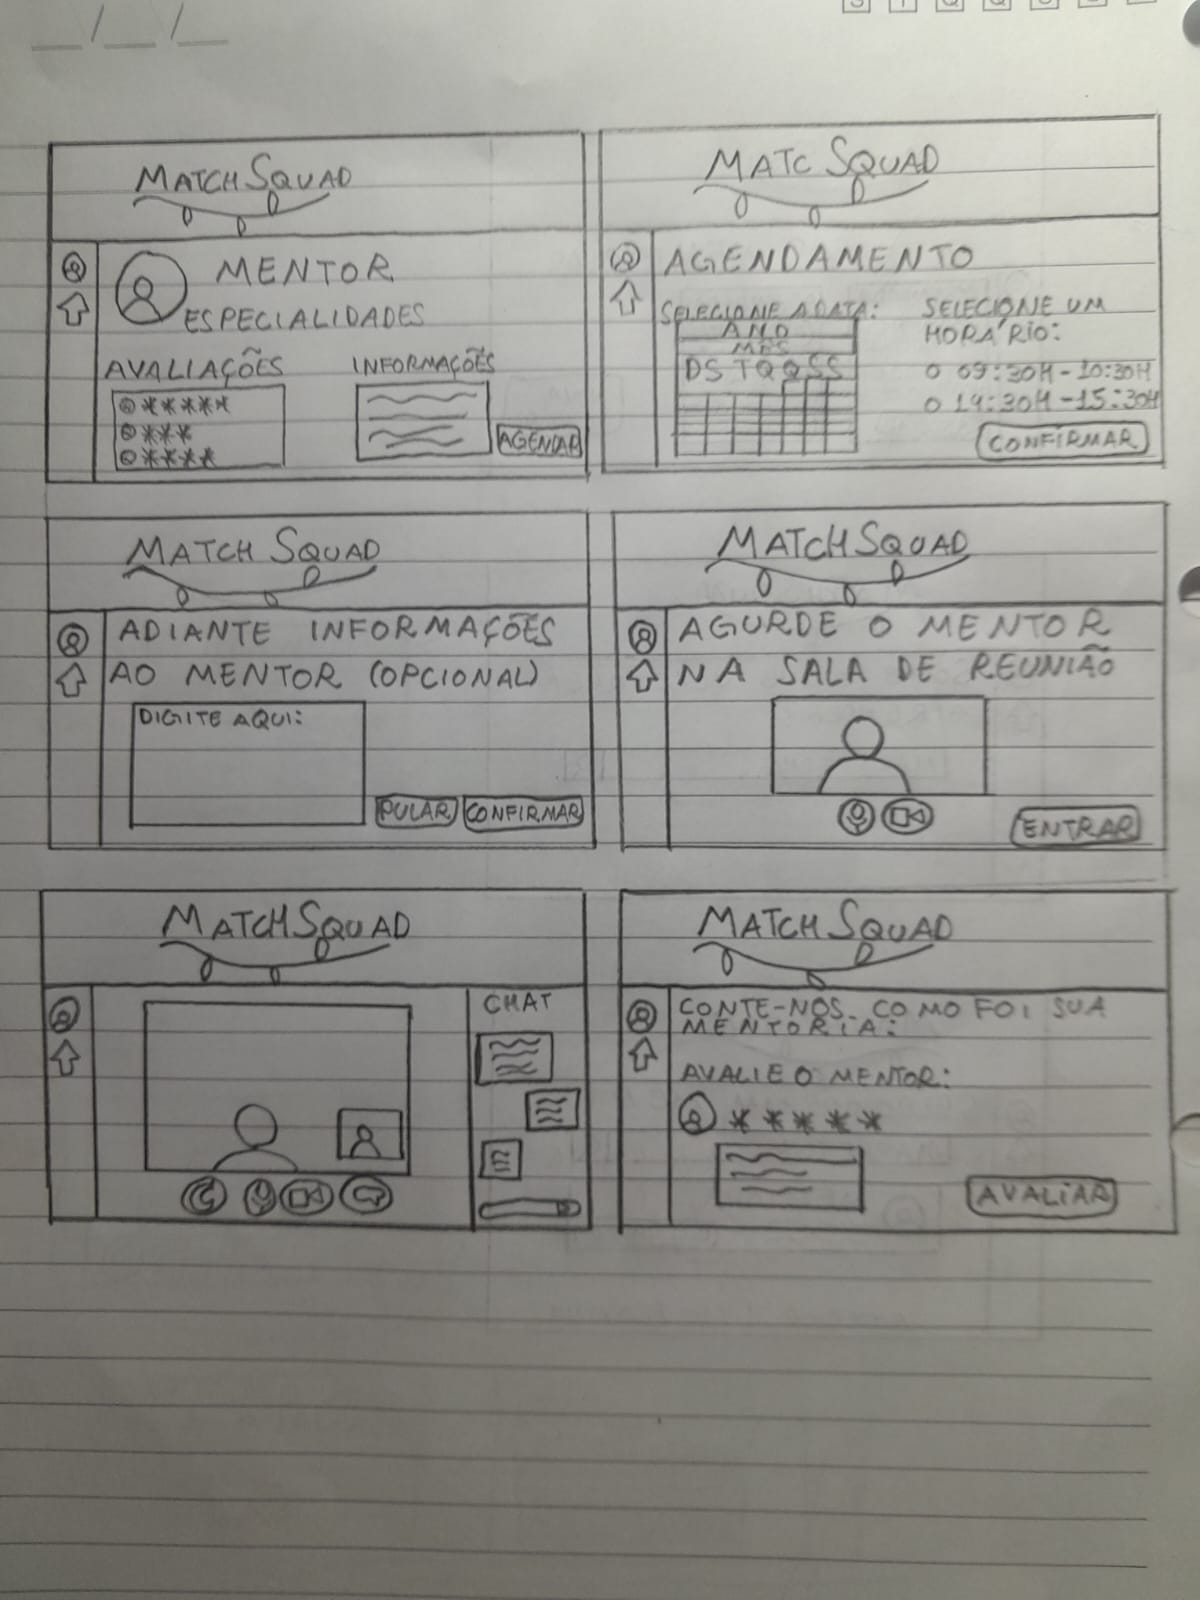 __/__/__
MATCH SQUAD
MENTOR
ESPECIALIDADES
AVALIAÇÕES
INFORMAÇÕES
*****
***
****
AGENDAR
MATC SQUAD
AGENDAMENTO
SELECIONE A DATA:
ANO
MÊS
D S T Q Q S S
SELECIONE UM
HORÁRIO:
O 09:30H - 10:30H
O 14:30H - 15:30H
CONFIRMAR
MATCH SQUAD
ADIANTE INFORMAÇÕES
AO MENTOR (OPCIONAL)
DIGITE AQUI:
PULAR
CONFIRMAR
MATCH SQUAD
AGURDE O MENTOR
NA SALA DE REUNIÃO
ENTRAR
MATCH SQUAD
CHAT
MATCH SQUAD
CONTE-NOS COMO FOI SUA
MENTORIA:
AVALIE O MENTOR:
*****
AVALIAR